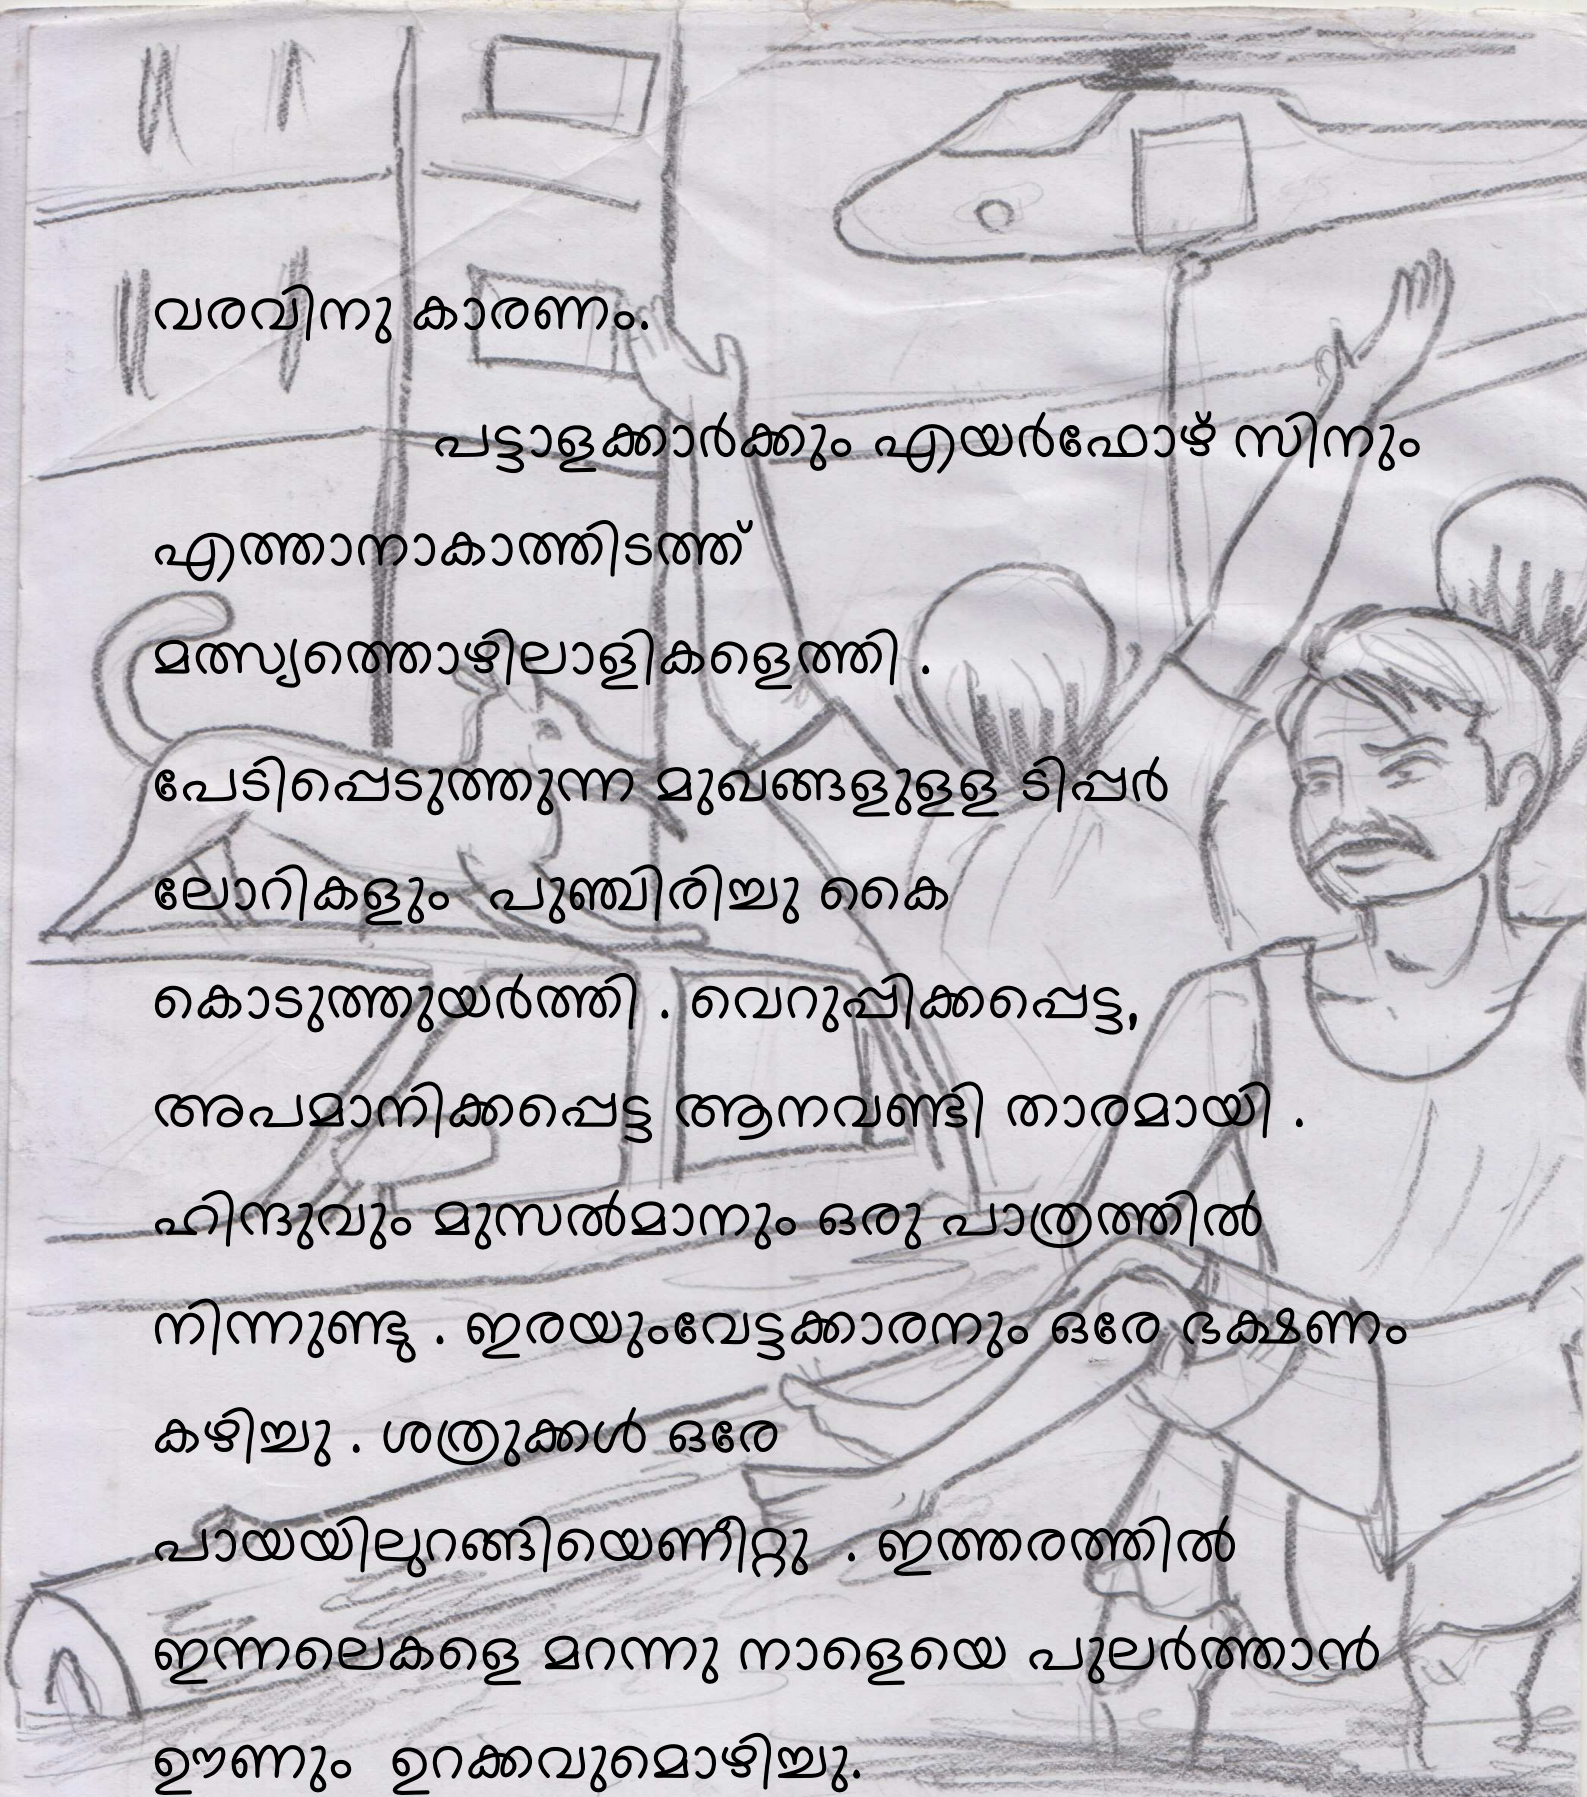 വരവിനു കാരണം.
പട്ടാളക്കാർക്കും എയർഫോഴ് സിനും
എത്താനാകാത്തിടത്ത്
മത്സ്യത്തൊഴിലാളികളെത്തി .
പേടിപ്പെടുത്തുന്ന മുഖങ്ങളുളള ടിപ്പർ
ലോറികളും പുഞ്ചിരിച്ചു കൈ
കൊടുത്തുയർത്തി . വെറുപ്പിക്കപ്പെട്ട,
അപമാനിക്കപ്പെട്ട ആനവണ്ടി താരമായി .
ഹിന്ദുവും മുസൽമാനും ഒരു പാത്രത്തിൽ
നിന്നുണ്ടു . ഇരയുംവേട്ടക്കാരനും ഒരേ ഭക്ഷണം
കഴിച്ചു . ശത്രുക്കൾ ഒരേ
പായയിലുറങ്ങിയെണീറ്റു . ഇത്തരത്തിൽ
ഇന്നലെകളെ മറന്നു നാളെയെ പുലർത്താൻ
ഊണും ഉറക്കവുമൊഴിച്ചു.